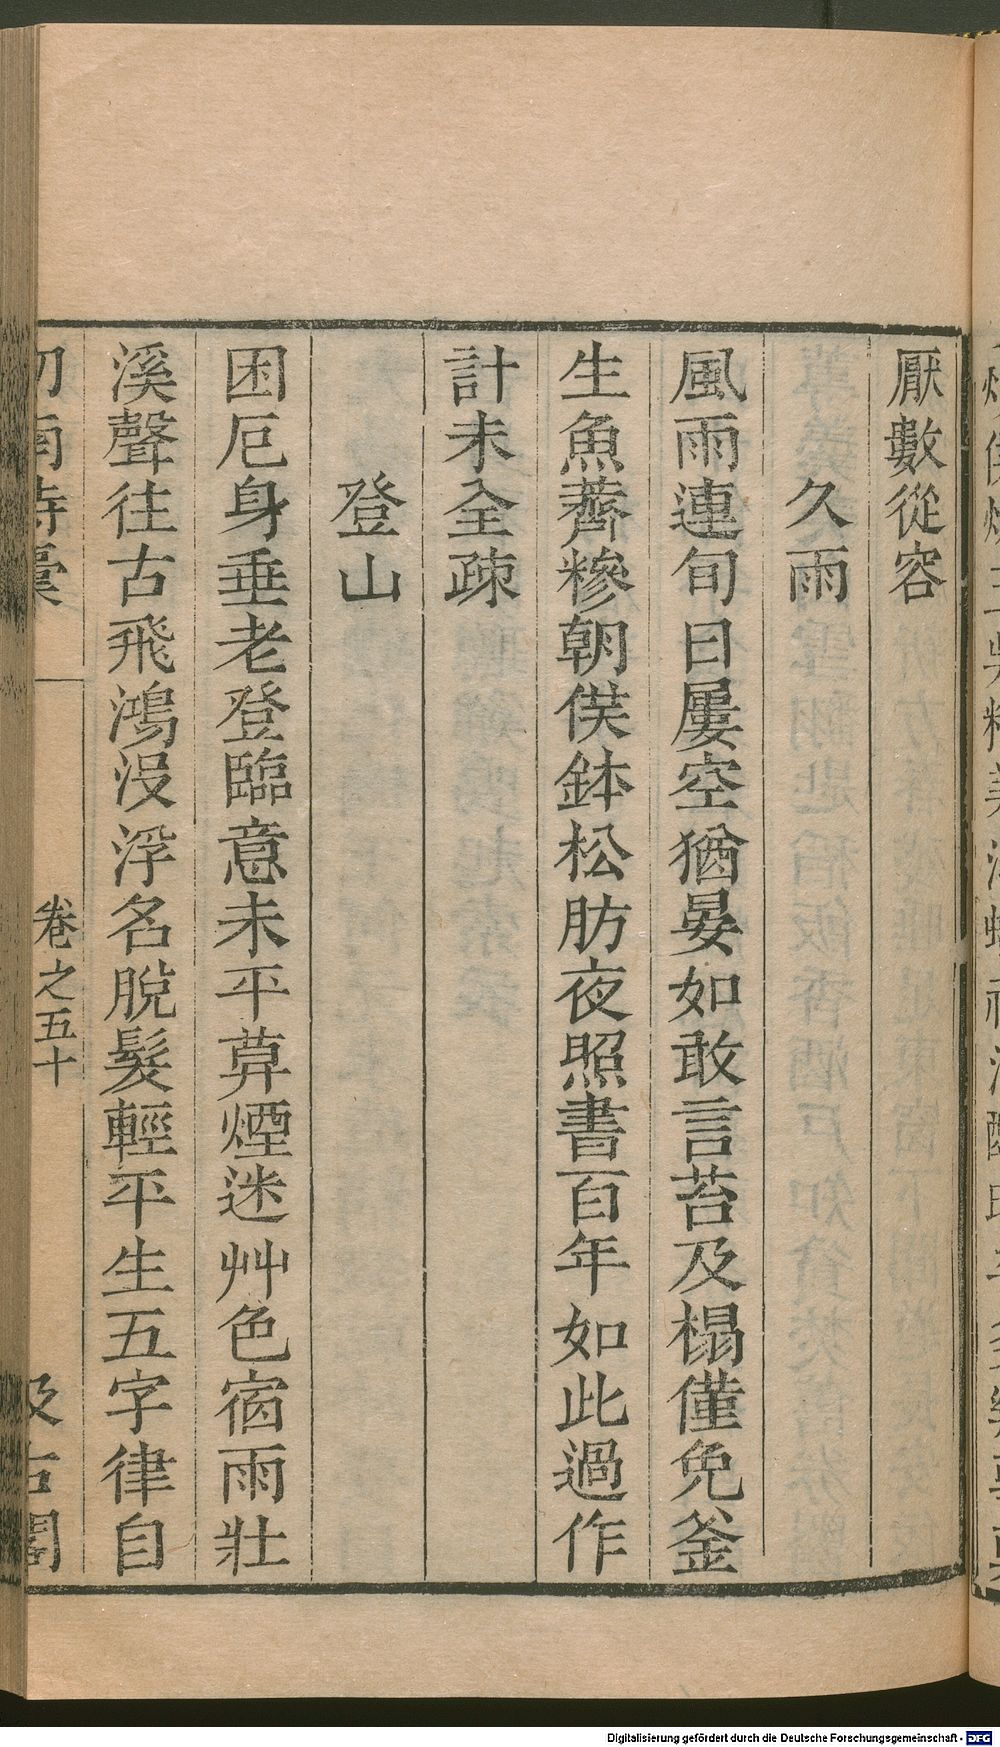 厭數從容
久雨
風雨連旬日屢空猶晏如敢言苔及榻僅免釜
生魚薺糝朝供鉢松肪夜照書百年如此過作
計未全疎
登山
困厄身垂老登臨意未平莽煙迷艸色宿雨壯
溪聲往古飛鴻沒浮名脫髮輕平生五字律自
劒南詩稾
卷之五十
汲古閣
Digitalisierung gefördert durch die Deutsche Forschungsgemeinschaft - DFG